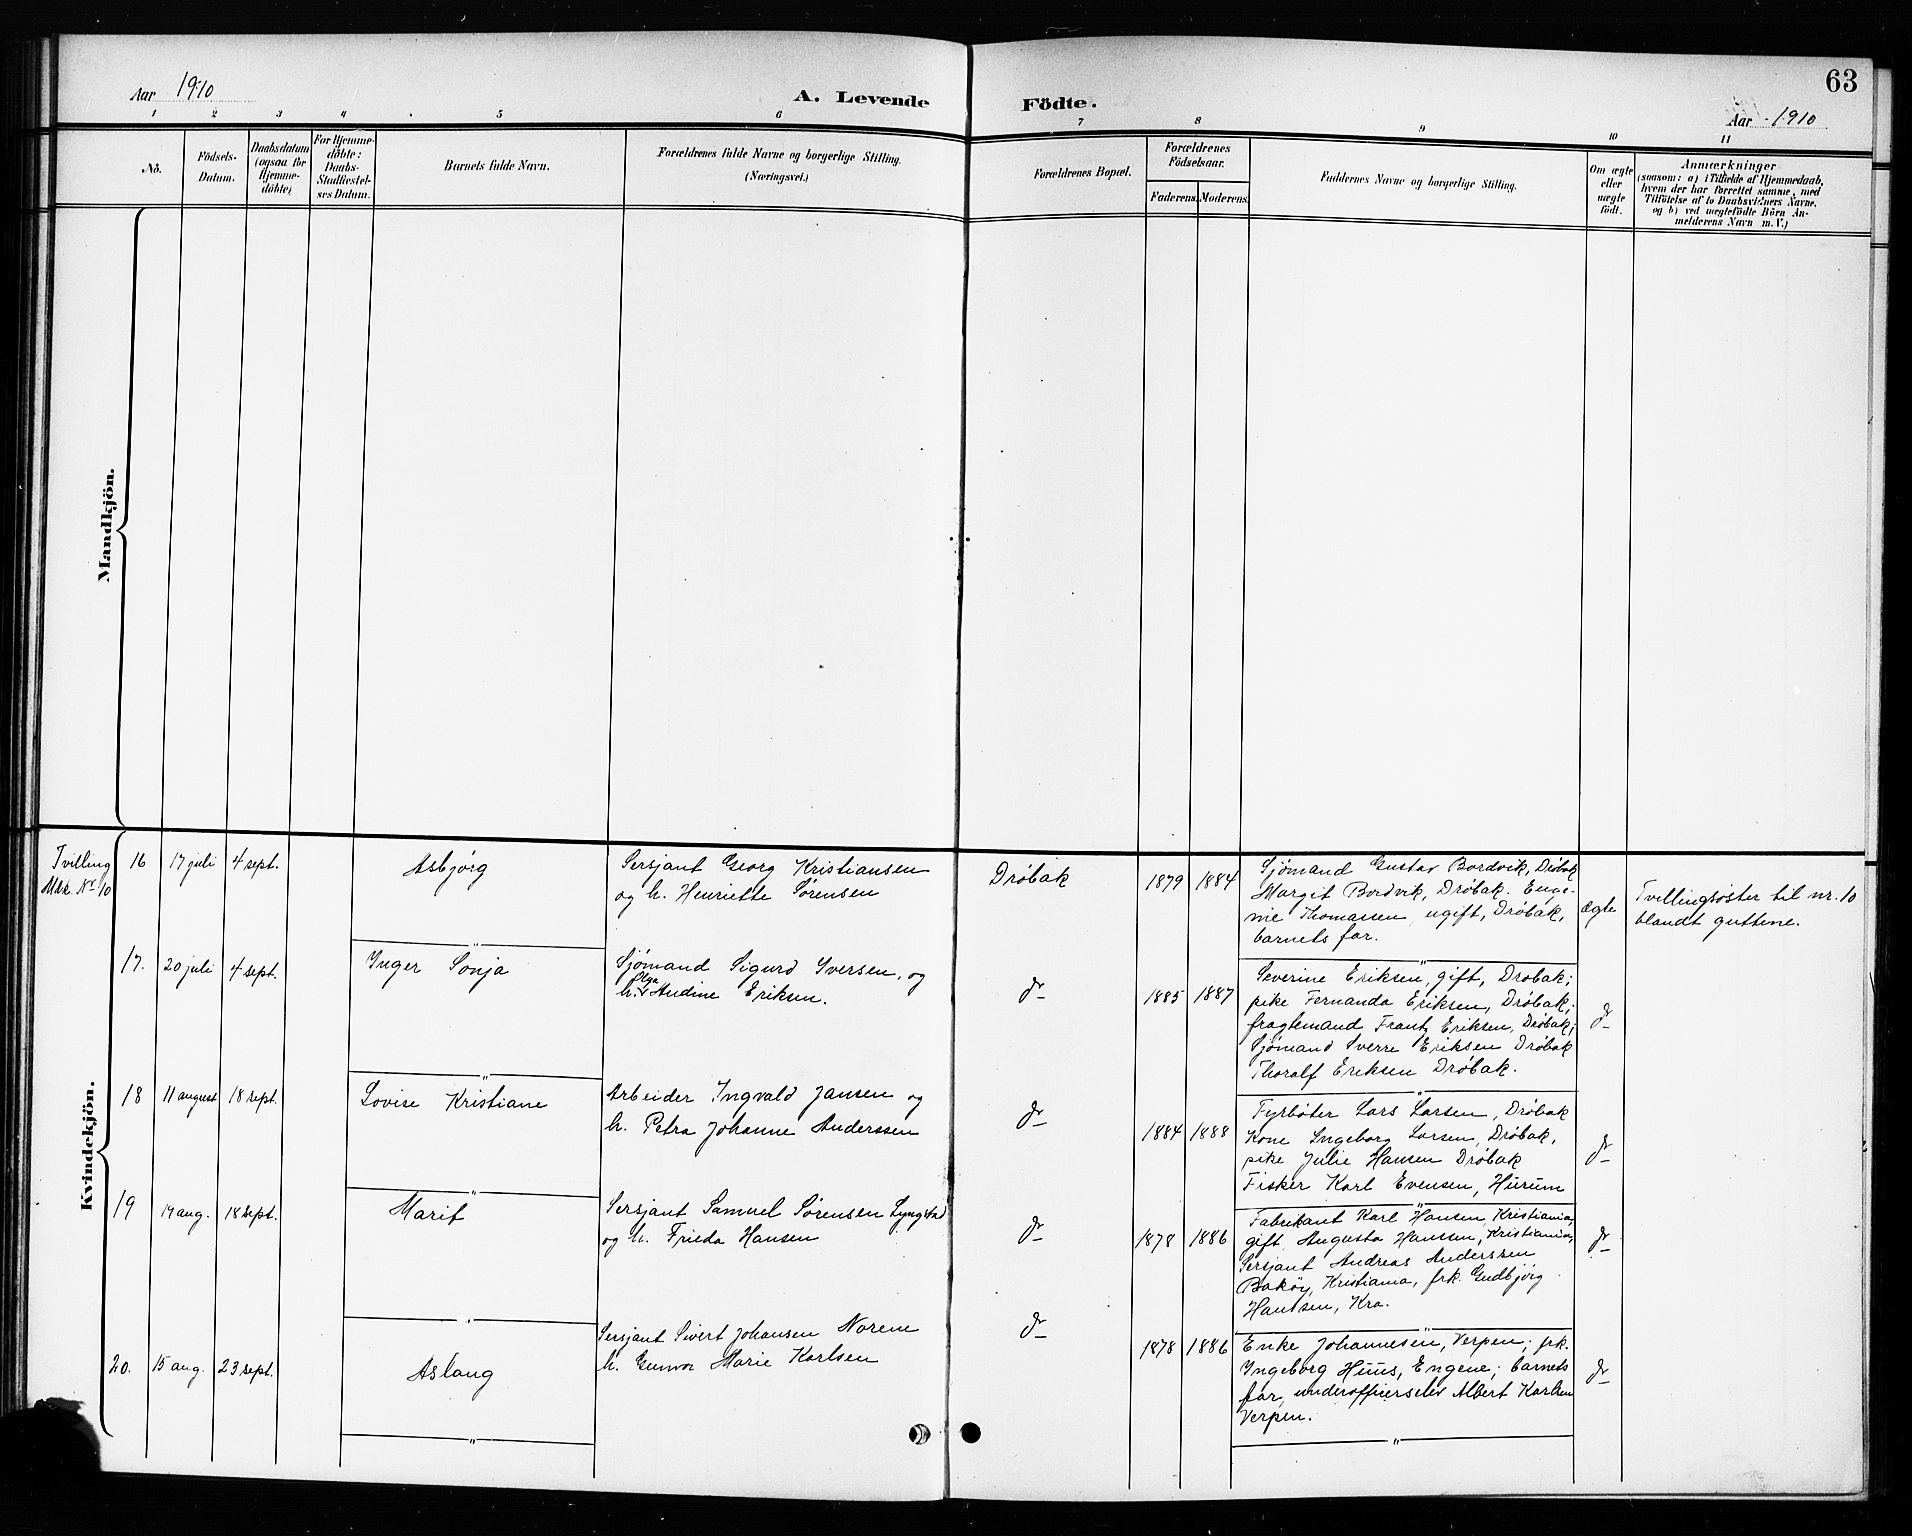 63
Aar 1910
A. Levende Födte.
Aar 1910
1 2 3 4 5 6 7 8 9 10 11
No.
Födsels-
Datum.
Daabsdatum
(ogsaa for
Hjemme-
döbte)
For Hjemme-
döbte:
Daabs-
Stadfæstel-
ses Datum.
Barnets fulde Navn.
Forældrenes fulde Navne og borgerlige Stilling.
(Næringsvei.)
Forældrenes Bopæl.
Forældrenes
Födselsaar.
Faderens. Moderens.
Faddernes Navne og borgerlige Stilling.
Om ægte
eller
uægte
födt.
Anmærkninger
(saasom: a) i Tilfælde af Hjemmedaab,
hvem der har forrettet samme, med
Tilföielse af to Daabsvidners Navne,
og b) ved uægtefödte Börn An-
melderens Navn m.V.)
Mandkjön.
Kvindekjön.
Tvilling
Mdk. Nr 10
16
17 juli
4 sept.
Asbjørg
Sersjant Georg Kristiansen
og h. Henriette Sørensen
Drøbak
1879
1884
Sjømand Gustav Bordvik, Drøbak
Margit Bordvik, Drøbak. Euge-
nie Thomassen, ugift, Drøbak,
barnets far.
ægte
Tvillingsøster til nr. 10
blandt guttene.
17.
20 juli
4 sept.
Inger Sonja
Sjømand Sigurd Iversen, og
h. Olga Andine Eriksen.
do
1885
1887
Severine Eriksen, gift, Drøbak;
pike Fernanda Eriksen, Drøbak;
fragtemand Frantz Eriksen, Drøbak;
Sjømand Sverre Eriksen Drøbak
Thoralf Eriksen Drøbak.
do
18
11 august
18 sept.
Lovise Kristiane
Arbeider Ingvald Jansen og
h. Petra Johanne Anderssen
do
1884
1888
Fyrbøter Lars Larsen, Drøbak
Kone Ingeborg Larsen, Drøbak,
pike Julie Hansen Drøbak
Fisker Karl Evensen, Hurum
do
19
14 aug.
18 sept.
Marit
Sersjant Samuel Sørensen Lyngstad
og h. Frieda Hansen
do
1878
1886
Fabrikant Karl Hansen, Kristiania,
gift Augusta Hanssen, Kristiania,
Sersjant Andreas Anderssen
Bakøy, Kristiania, frk. Gudbjørg
Hanssen, Kra.
do
20.
15 aug.
23 sept.
Aslaug
Sersjant Sivert Johansen Norene
h. Gunvor Marie Karlsen
do
1878
1886
Enke Johannesen, Verpen; frk.
Ingeborg Huus, Engene; barnets
far, underofficerselev Albert Karlsen
Verpen.
do